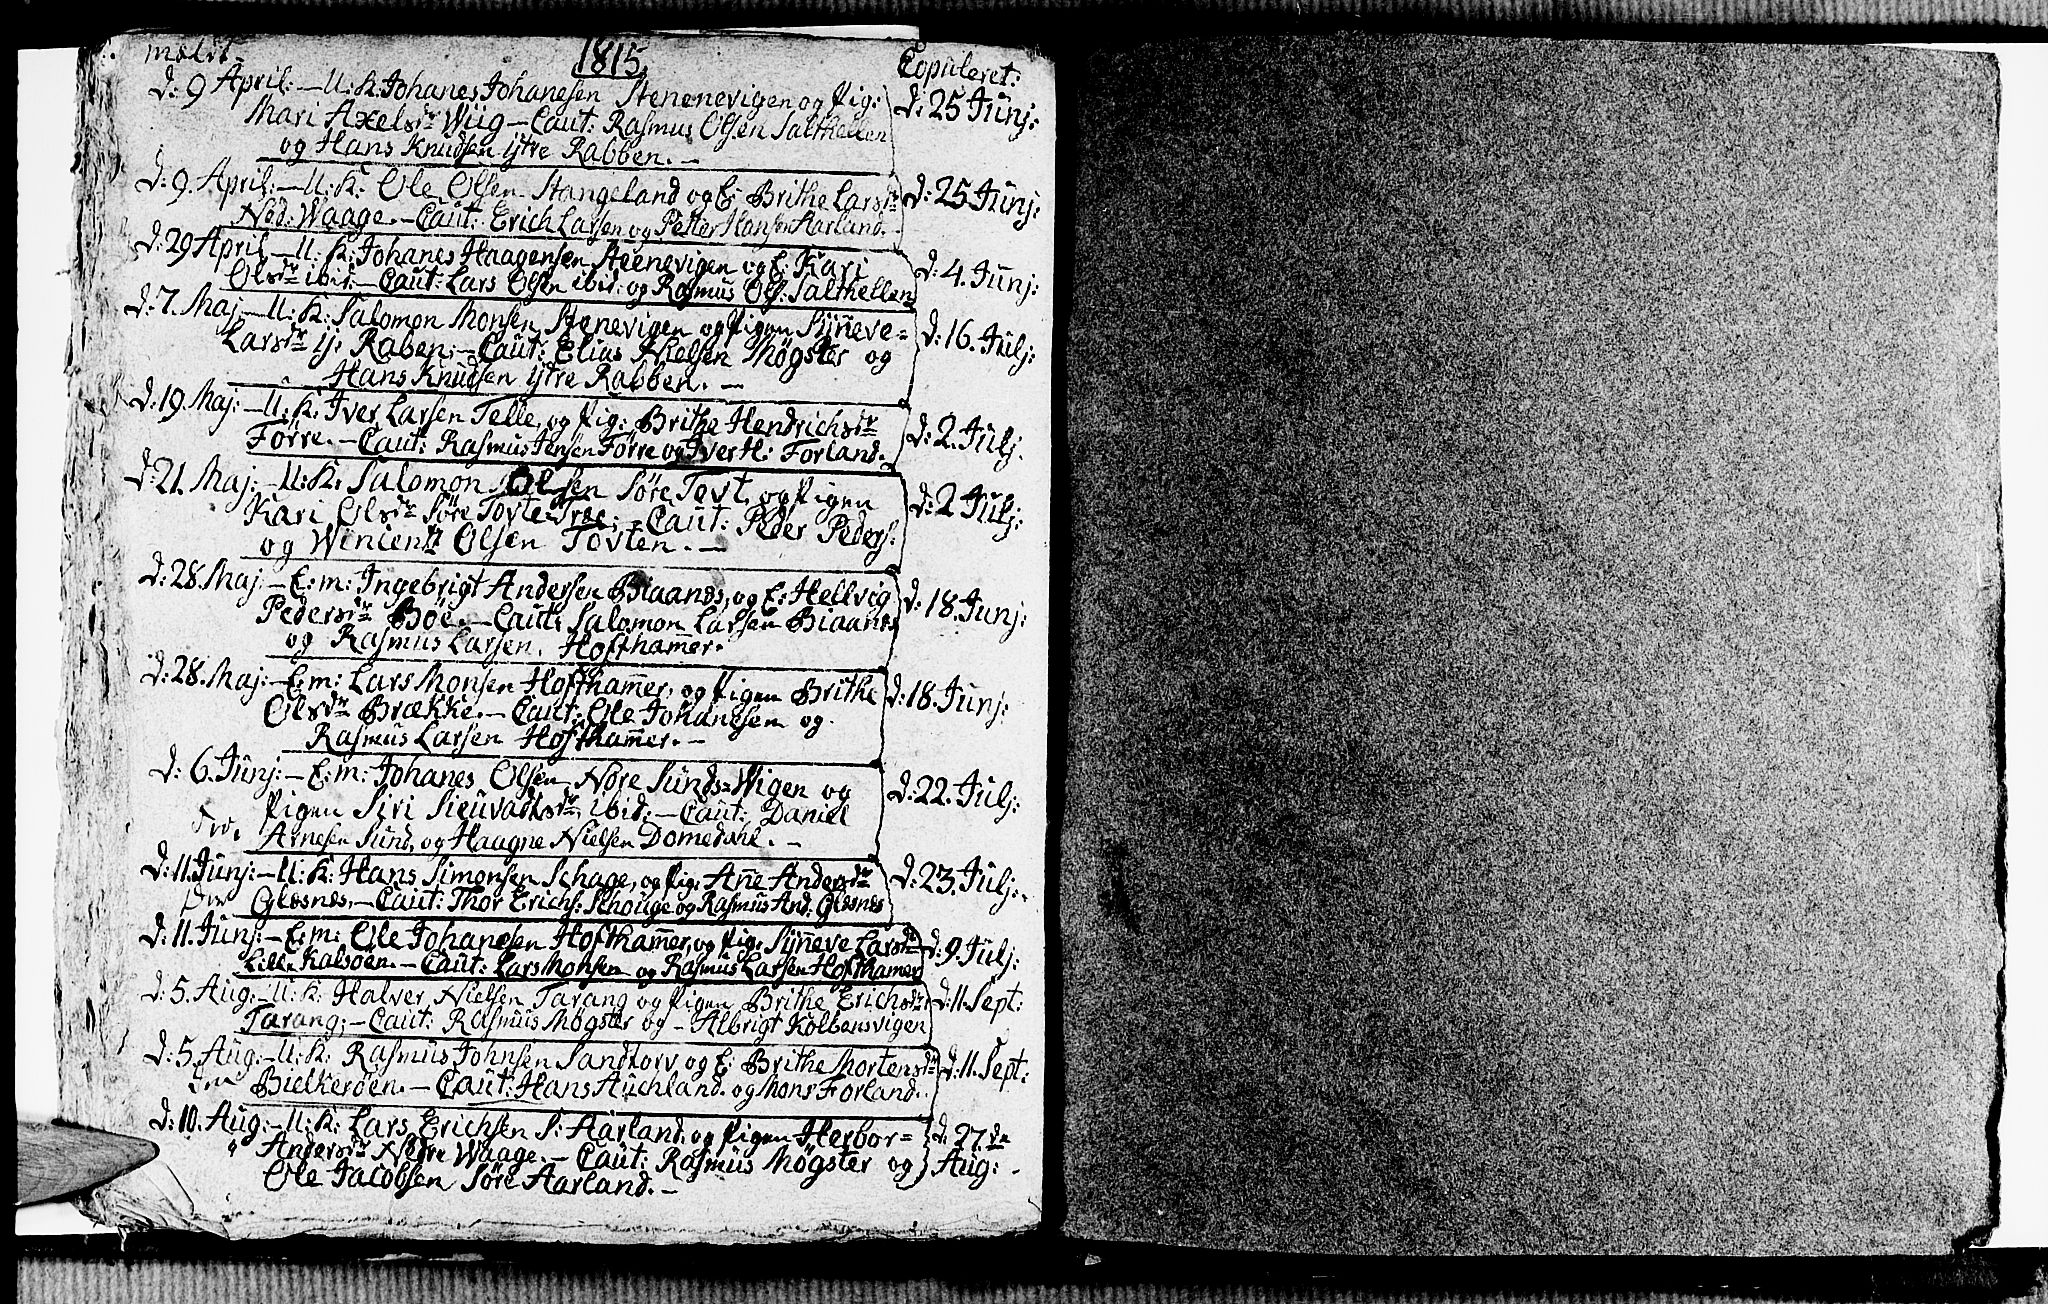 1815
meldt Copuleret:
d: 9 April: – U: K: Johanes Johanesen Stenenevigen og Pig: d: 25 Junj:
Mari Axelsdr Wiig – Caut: Rasmus Olsen Salthellen
og Hans Knudsen ijtre Rabben. –
d: 9. April: – U: K: Ole Olsen Stangeland og E: Brithe Larsdr d: 25 Junj:
Ned: Waage. – Caut: Erich Larsen og Petter Hansen Aarland.
d: 29 April – U: K: Johanes Haagensen Steenevigen og E: Kari d: 4. Junj:
Olsdr ibid: – Caut: Lars Olsen ibid: og Rasmus Ols: Salthellen
d: 7. Maj – U: K: Salomon Monsen Stenevigen og Pigen Sijneve= d: 16. Julj:
Larsdr ij: Raben: – Caut: Elias Nielsen Møgster og
Hans Knudsen ijtre Rabben. –
d: 19. Maj: – U: K: Iver Larsen Telle, og Pig: Brithe Hendrichsdr d: 2. Julj.
Førre. – Caut: Rasmus Jensen Førre og Iver H: Forland.
d: 21. Maj: – U: K: Salomon Olsen Søre Tovt, og Pigen d: 2 Julj:
Kari Olsdr Søre Tovte=Træe; – Caut: Peder Peders:
og Wincents Olsen Tovten. –
d: 28. Maj: – E: m: Ingebrigt Andersen Biaanæs, og E: Hellvig d: 18. Junj:
Pedersdr Böe. – Caut: Salomon Larsen Biaanæs
og Rasmus Larsen. Hoftham̄er.
d: 28. Maj: – E: m: Lars Monsen Hoftham̄er, og Pigen Brithe d: 18. Junj:
Olsdr Brække. – Caut: Ole Johanesen og
Rasmus Larsen Hoftham̄er. –
d: 6. Junj: – E: m: Johanes Olsen Nøre Sunds=Wigen og d: 22. Julj:
Pigen Siri Sieuvadsdr ibid: – Caut: Daniel
Arnesen Sund, og Haagne Nielsen Domedahl. –
d: 11. Junj: – U: K: Hans Simonsen Schage, og Pig: An̄e Andersdr d: 23. Julj:
Glæsnæs, – Caut: Thor Erichs: Schouge og Rasmus And: Glæsnæs
d: 11. Junj: – E: m: Ole Johanesen Hoftham̄er, og Pig: Sijn̄eve Larsdr d: 9. Julj:
Lille Kalsöen. – Caut: Lars Monsen og Rasmus Larsen Hofthamer
d: 5. Aug: – U: K: Halver Nielsen Tarang og Pigen Brithe Erichsdr d: 11. Sept:
Tarang; – Caut: Rasmus Møgster og – Albrigt Kolbensvigen
d: 5. Aug: – U: K: Rasmus Johnsen Sandtorv og E: Brithe Mortensdr d: 11. Sept:
Bielkerøen. – Caut: Hans Auchland. og Mons Forland.
d: 10. Aug: – U: K: Lars Erichsen S: Aarland: og Pigen Herbor= d: 27.de
Andersdr Nedre Waage. – Caut: Rasmus Møgster og Aug:
Ole Jacobsen Søre Aarland. –